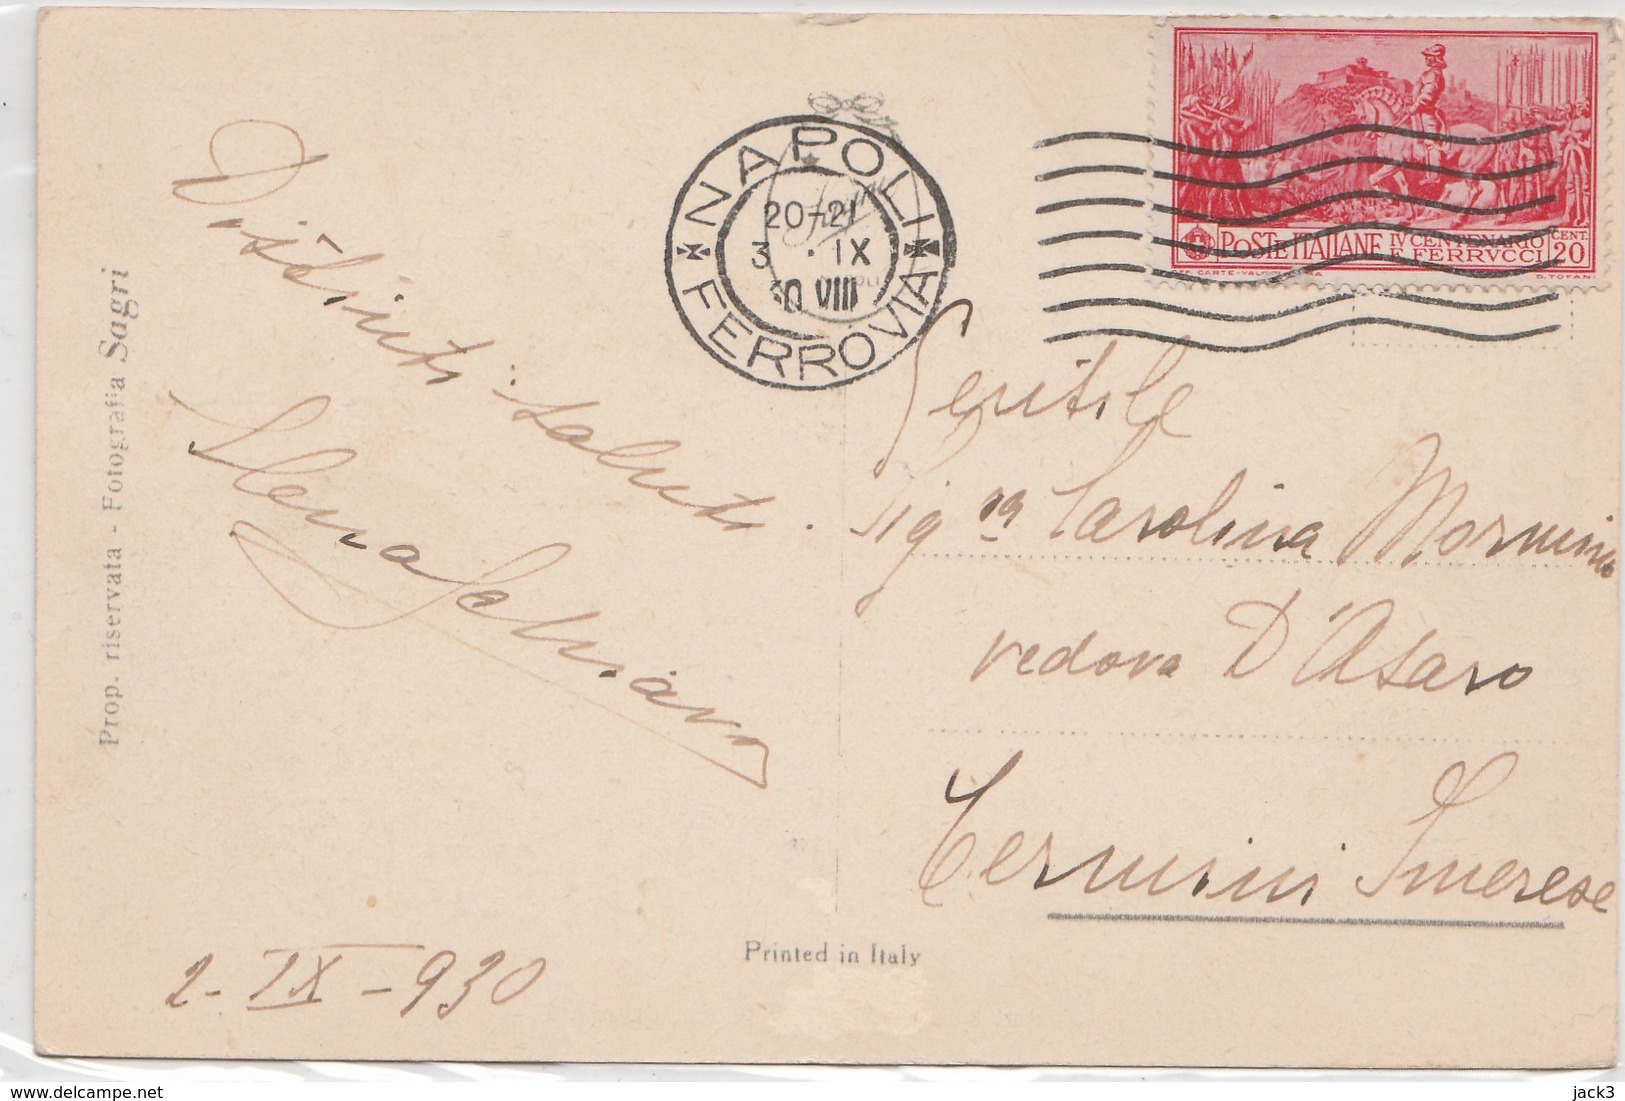 Distinti saluti.
Prop. riservata - Fotografia Sagri
2-IX-930
NAPOLI
20-21
3 · IX
30 VIII
FERROVIA
POSTE ITALIANE IV CENTENARIO CENT.
F. FERRVCCI 20
Gentile
Sig.ra Carolina Mormino
vedova D'Asaro
Termini Imerese
Printed in Italy
delcampe.net
jack3